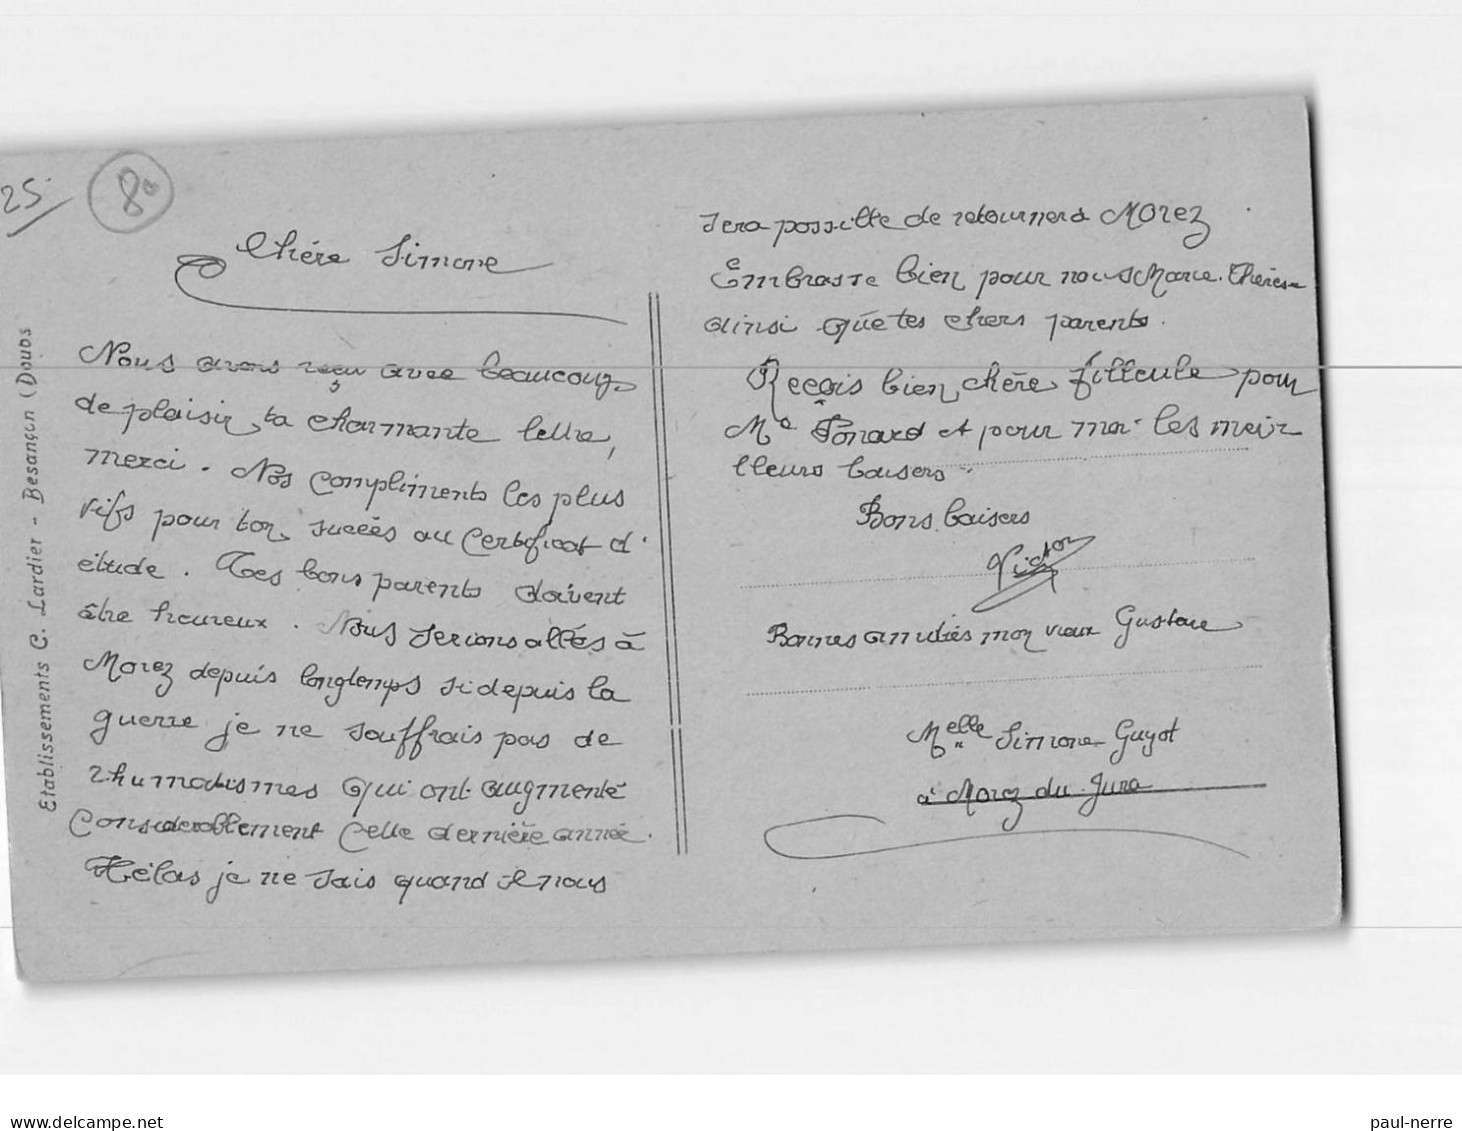 25
8
Chère Simone
Nous avons reçu avec beaucoup
de plaisir, ta charmante lettre,
merci. Nos compliments les plus
vifs pour ton succès au Certificat d'
étude. Tes bons parents doivent
être heureux. Nous serions allés à
Morez depuis longtemps si depuis la
guerre je ne souffrais pas de
rhumatismes qui ont augmenté
Considerablement Cette dernière année.
Hélas je ne sais quand il nous
sera possible de retourner à Morez
Embrasse bien pour nous Marie. Thérèse
ainsi que tes chers parents.
Reçois bien chère filleule pour
Me Ponard et pour moi les meil
lleurs baisers.
Bons baisers
Victor
Bonnes amitiés mon vieux Gustave
Melle Simone Guyot
à Morez du Jura
Etablissements C. Lardier - Besançon (Doubs
www.delcampe.net
paul-nerre